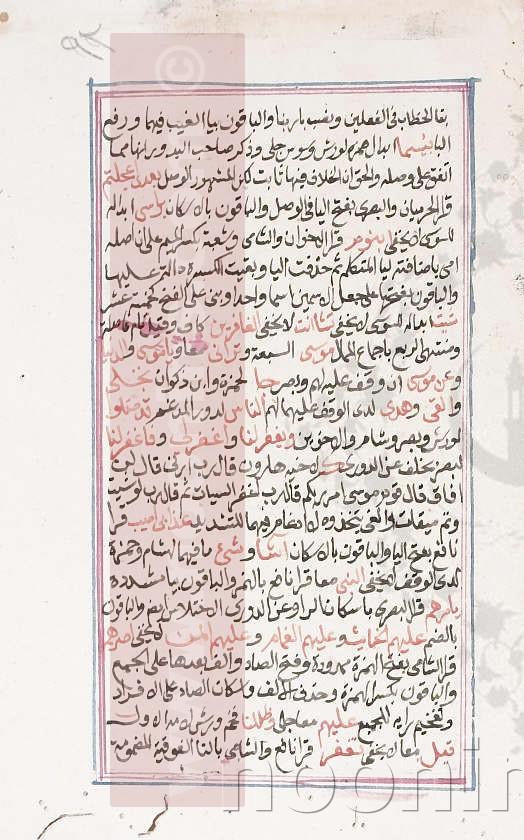 بتا الخطاب في الفعلين ونصب باربنا والباقون بيا الغيب فيهما ورفع
البا بئسما ابدال همزه لورش وسوسي جلي وذكر صاحب البدور انها مما
اتفق على وصله والحق ان الخلاف فيها ثابت لكن المشهور الوصل بعدي اعجلتم
قرا الحرميان والبصري بفتح اليا في الوصل والباقون بالاسكان براسي ابداله
للسوسي لا يخفى ابن ام قرا الاخوان والشامي وشعبة بكسر الميم على ان اصله
امي باضافته ليا المتكلم ثم حذفت اليا وبقيت الكسرة دالة عليها
والباقون بفتحها على جعل الاسمين اسما واحدا وبني على الفتح كخمسة عشر
شئت ابداله للسوسي لا يخفى تشا انت لا يخفى الغافرين كاف وقيل تام فاصلة
ومنتهى الربع باجماع الممال موسى السبعة وتراني معا وياموسى والدنيا
وعن موسى ان وقف عليه لهم وبصر جا لحمزة وابن ذكوان تجلى
والقى وهدى لدى الوقف عليهما لهم الناس لدور المدغم قد ضلوا
لورش وبصر وشام والاخوين ويغفر لنا واغفر لي وفاغفر لنا
لبصر بخلف عن الدوري ك لاخيه هارون قال رب ارني قال لن
افاق قال قوم موسى امر ربكم قال رب اغفر السيئات ثم قال رب لو شئت
وتم ميقات والغي يتخذوه لا ادغام فيهما للتشديد عذابي اصيب قرا
نافع بفتح اليا والباقون بالاسكان اشا وشئ ما فيهما لهشام وحمزة
لدى الوقف لا يخفى النبي معا قرا نافع بالهمز والباقون بيا مشددة
يامرهم قرا البصري باسكان الرا وعن الدوري الاختلاس ايضا والباقون
بالضم عليهم الخبائث وعليهم الغمام وعليهم المن لا يخفى اصرهم
قرا الشامي بفتح الهمزة ممدودة وفتح الصاد والف بعدها على الجمع
والباقون بكسر الهمزة وحذف الالف واسكان الصاد على الافراد
وتفخيم رايه للجميع عليهم معا جلي وظللنا فخم ورش لامه الاول
قيل معا لا يخفى نغفر قرا نافع والشامي بالتا الفوقية المضمومة
noorin